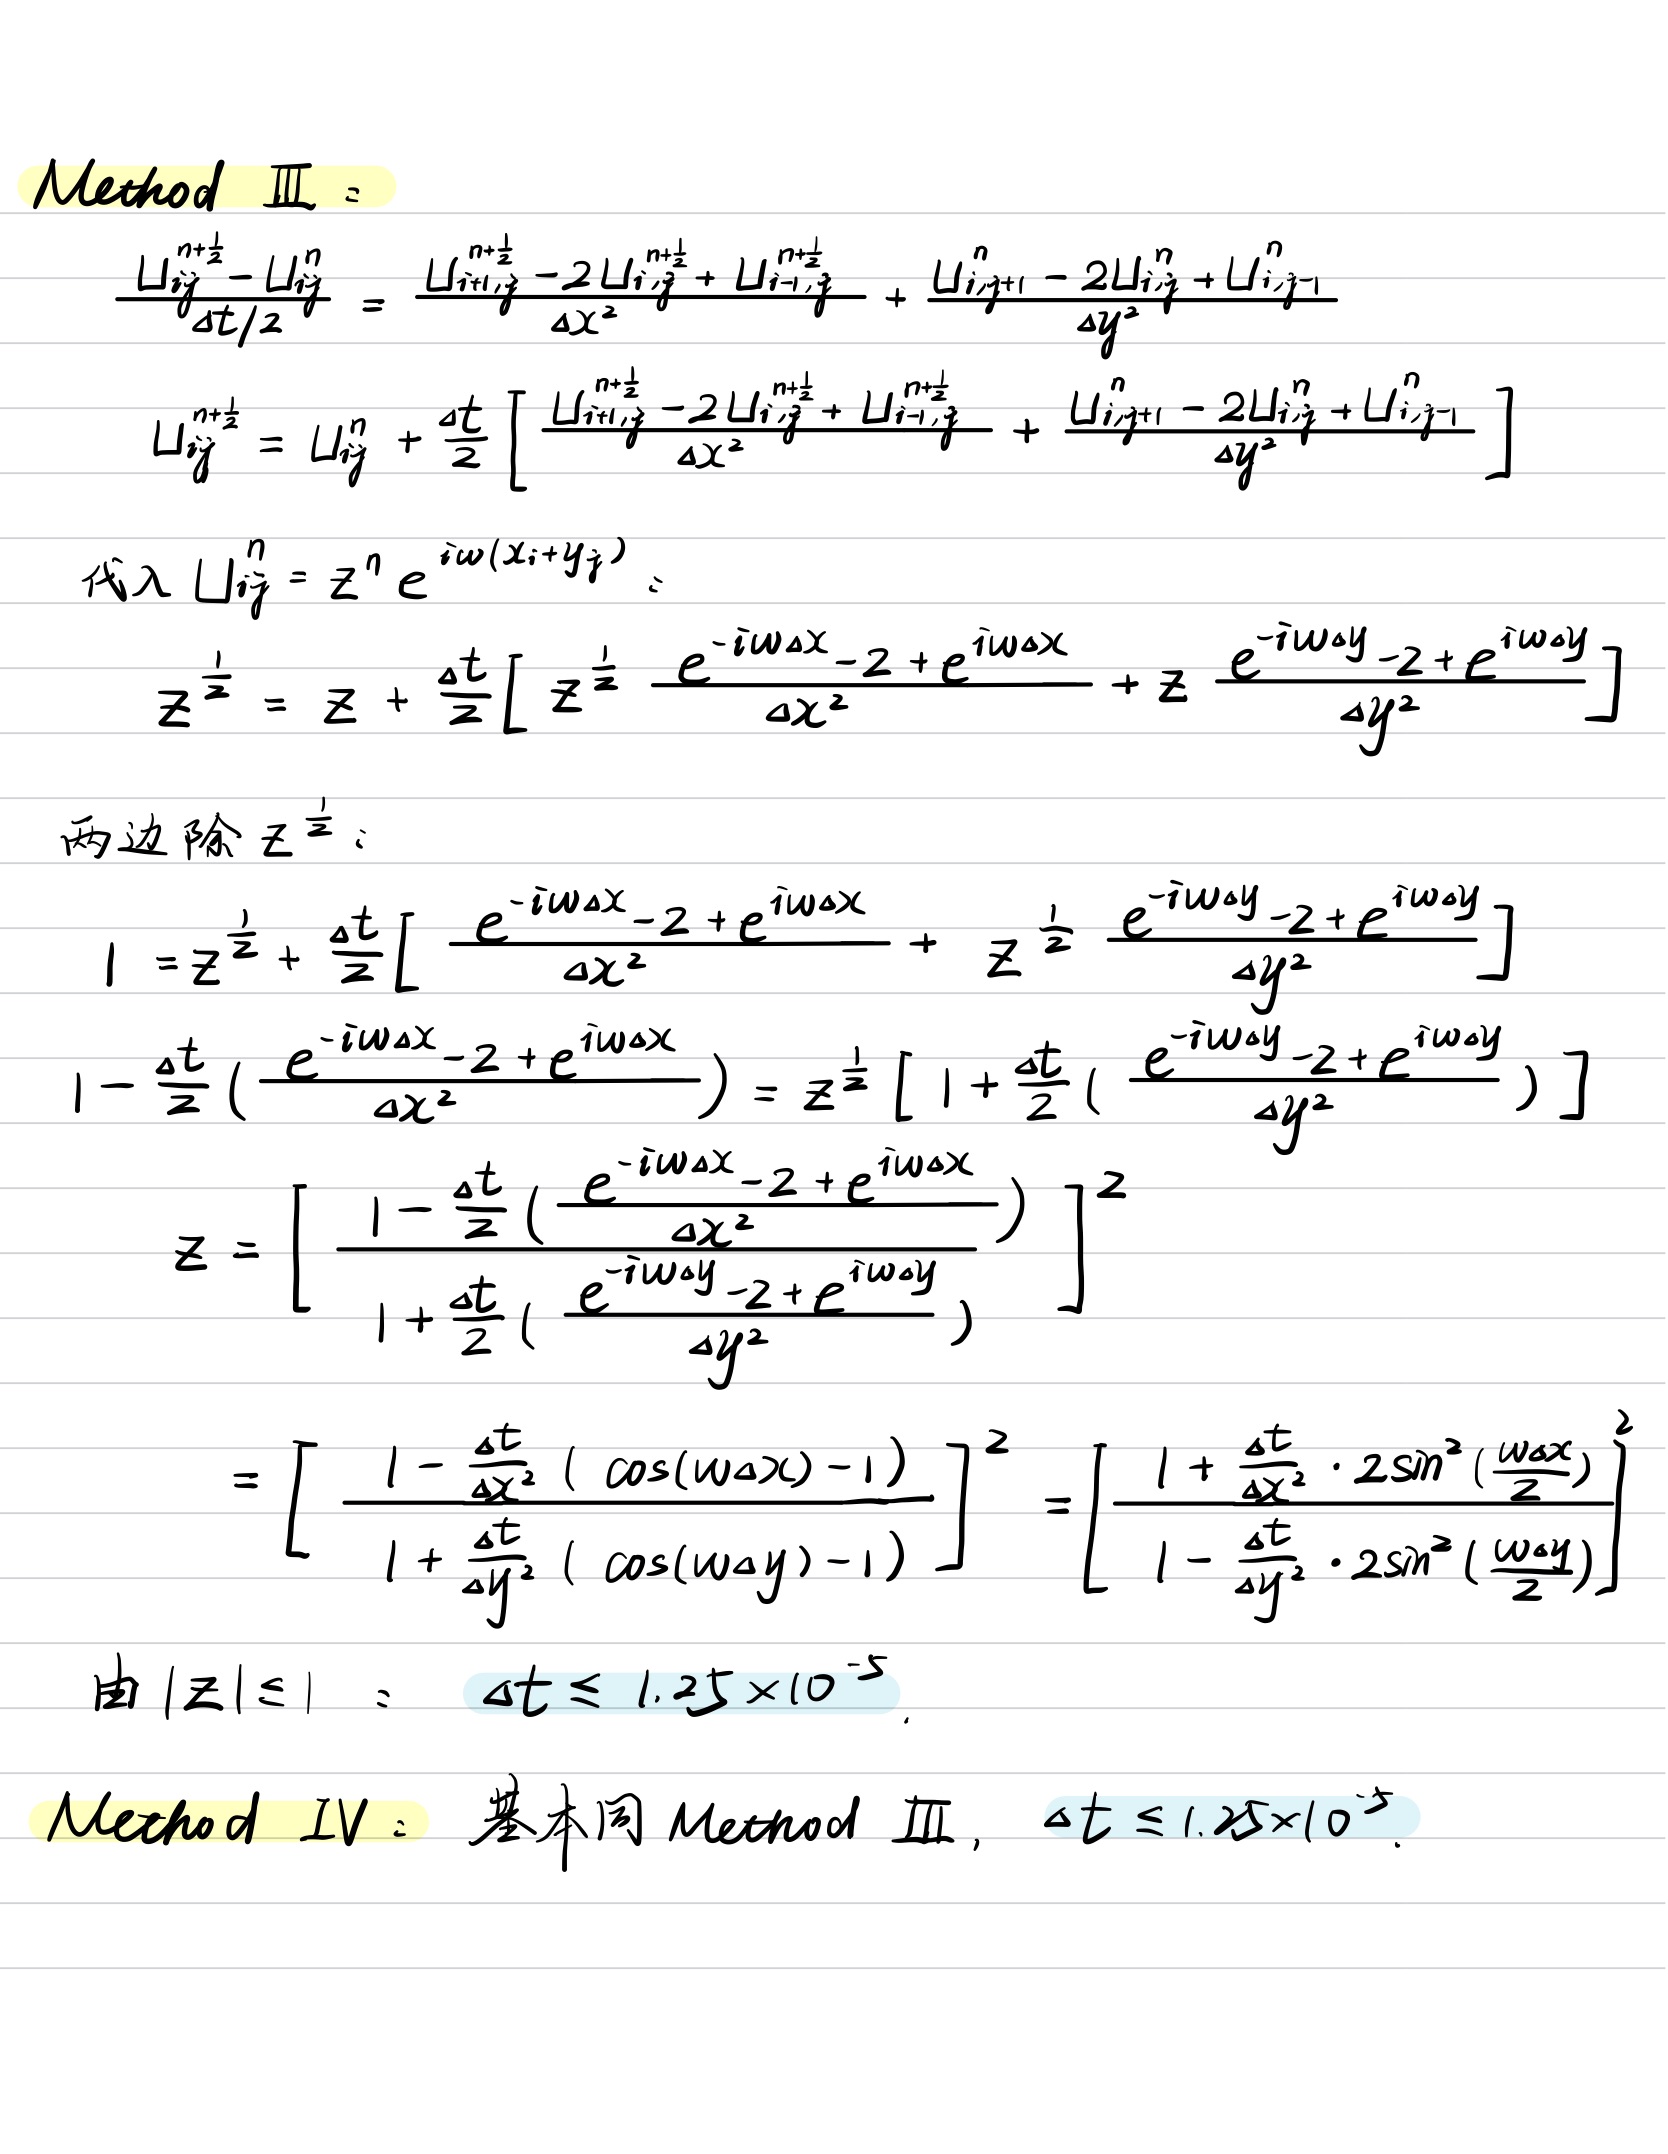 Method III:
\frac{U_{ij}^{n+\frac{1}{2}} - U_{ij}^{n}}{\Delta t/2} = \frac{U_{i+1,j}^{n+\frac{1}{2}} - 2U_{i,j}^{n+\frac{1}{2}} + U_{i-1,j}^{n+\frac{1}{2}}}{\Delta x^2} + \frac{U_{i,j+1}^{n} - 2U_{i,j}^{n} + U_{i,j-1}^{n}}{\Delta y^2}
U_{ij}^{n+\frac{1}{2}} = U_{ij}^{n} + \frac{\Delta t}{2} [ \frac{U_{i+1,j}^{n+\frac{1}{2}} - 2U_{i,j}^{n+\frac{1}{2}} + U_{i-1,j}^{n+\frac{1}{2}}}{\Delta x^2} + \frac{U_{i,j+1}^{n} - 2U_{i,j}^{n} + U_{i,j-1}^{n}}{\Delta y^2} ]
代入 U_{ij}^{n} = z^n e^{iw(x_i+y_j)} :
z^{\frac{1}{2}} = z + \frac{\Delta t}{2} [ z^{\frac{1}{2}} \frac{e^{-iw\Delta x} - 2 + e^{iw\Delta x}}{\Delta x^2} + z \frac{e^{-iw\Delta y} - 2 + e^{iw\Delta y}}{\Delta y^2} ]
两边除 z^{\frac{1}{2}} :
1 = z^{\frac{1}{2}} + \frac{\Delta t}{2} [ \frac{e^{-iw\Delta x} - 2 + e^{iw\Delta x}}{\Delta x^2} + z^{\frac{1}{2}} \frac{e^{-iw\Delta y} - 2 + e^{iw\Delta y}}{\Delta y^2} ]
1 - \frac{\Delta t}{2} ( \frac{e^{-iw\Delta x} - 2 + e^{iw\Delta x}}{\Delta x^2} ) = z^{\frac{1}{2}} [ 1 + \frac{\Delta t}{2} ( \frac{e^{-iw\Delta y} - 2 + e^{iw\Delta y}}{\Delta y^2} ) ]
z = [ \frac{1 - \frac{\Delta t}{2} ( \frac{e^{-iw\Delta x} - 2 + e^{iw\Delta x}}{\Delta x^2} )}{1 + \frac{\Delta t}{2} ( \frac{e^{-iw\Delta y} - 2 + e^{iw\Delta y}}{\Delta y^2} )} ]^2
= [ \frac{1 - \frac{\Delta t}{\Delta x^2} ( cos(w\Delta x) - 1 )}{1 + \frac{\Delta t}{\Delta y^2} ( cos(w\Delta y) - 1 )} ]^2 = [ \frac{1 + \frac{\Delta t}{\Delta x^2} · 2sin^2 (\frac{w\Delta x}{2})}{1 - \frac{\Delta t}{\Delta y^2} · 2sin^2 (\frac{w\Delta y}{2})} ]^2
由 |z| ≤ 1 : \Delta t ≤ 1.25×10^{-5}.
Method IV: 基本同 Method III, \Delta t ≤ 1.25×10^{-5}.